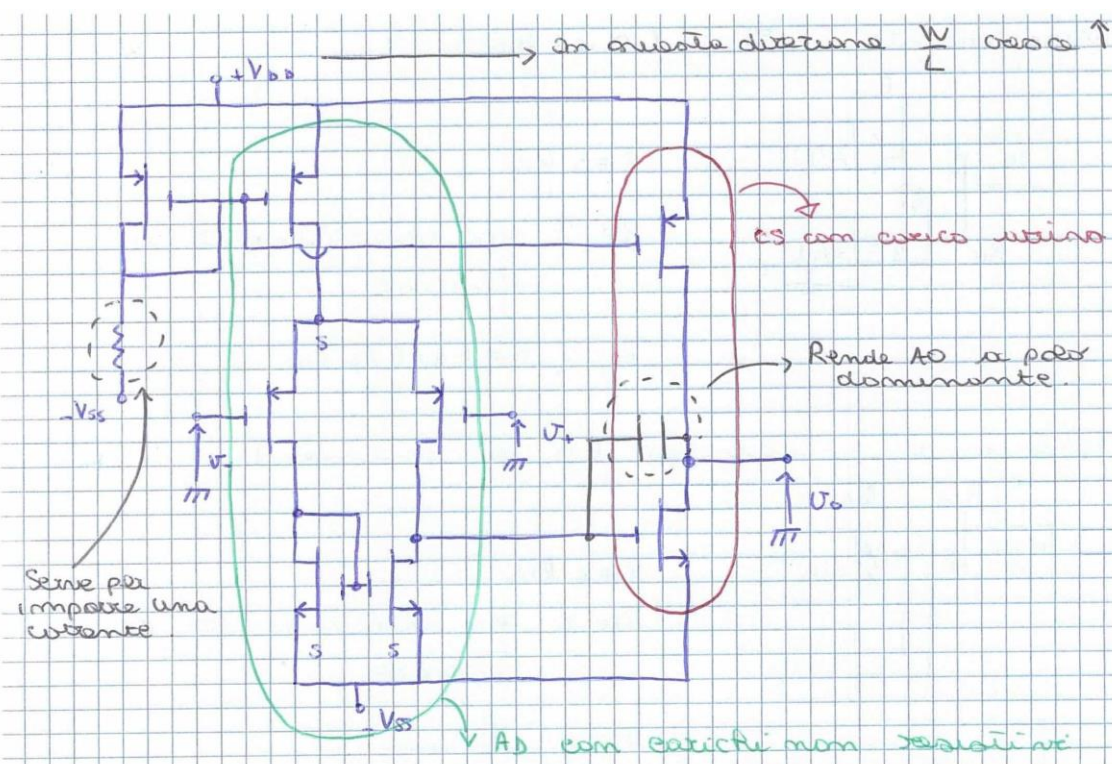 In questa direzione W/L cresce ↑
+VDD
CS con carico attivo
S
Rende AO a polo
dominante.
-VSS
V-
V+
Vo
Serve per
imporre una
corrente.
S S
-VSS
AD con carichi non resistivi